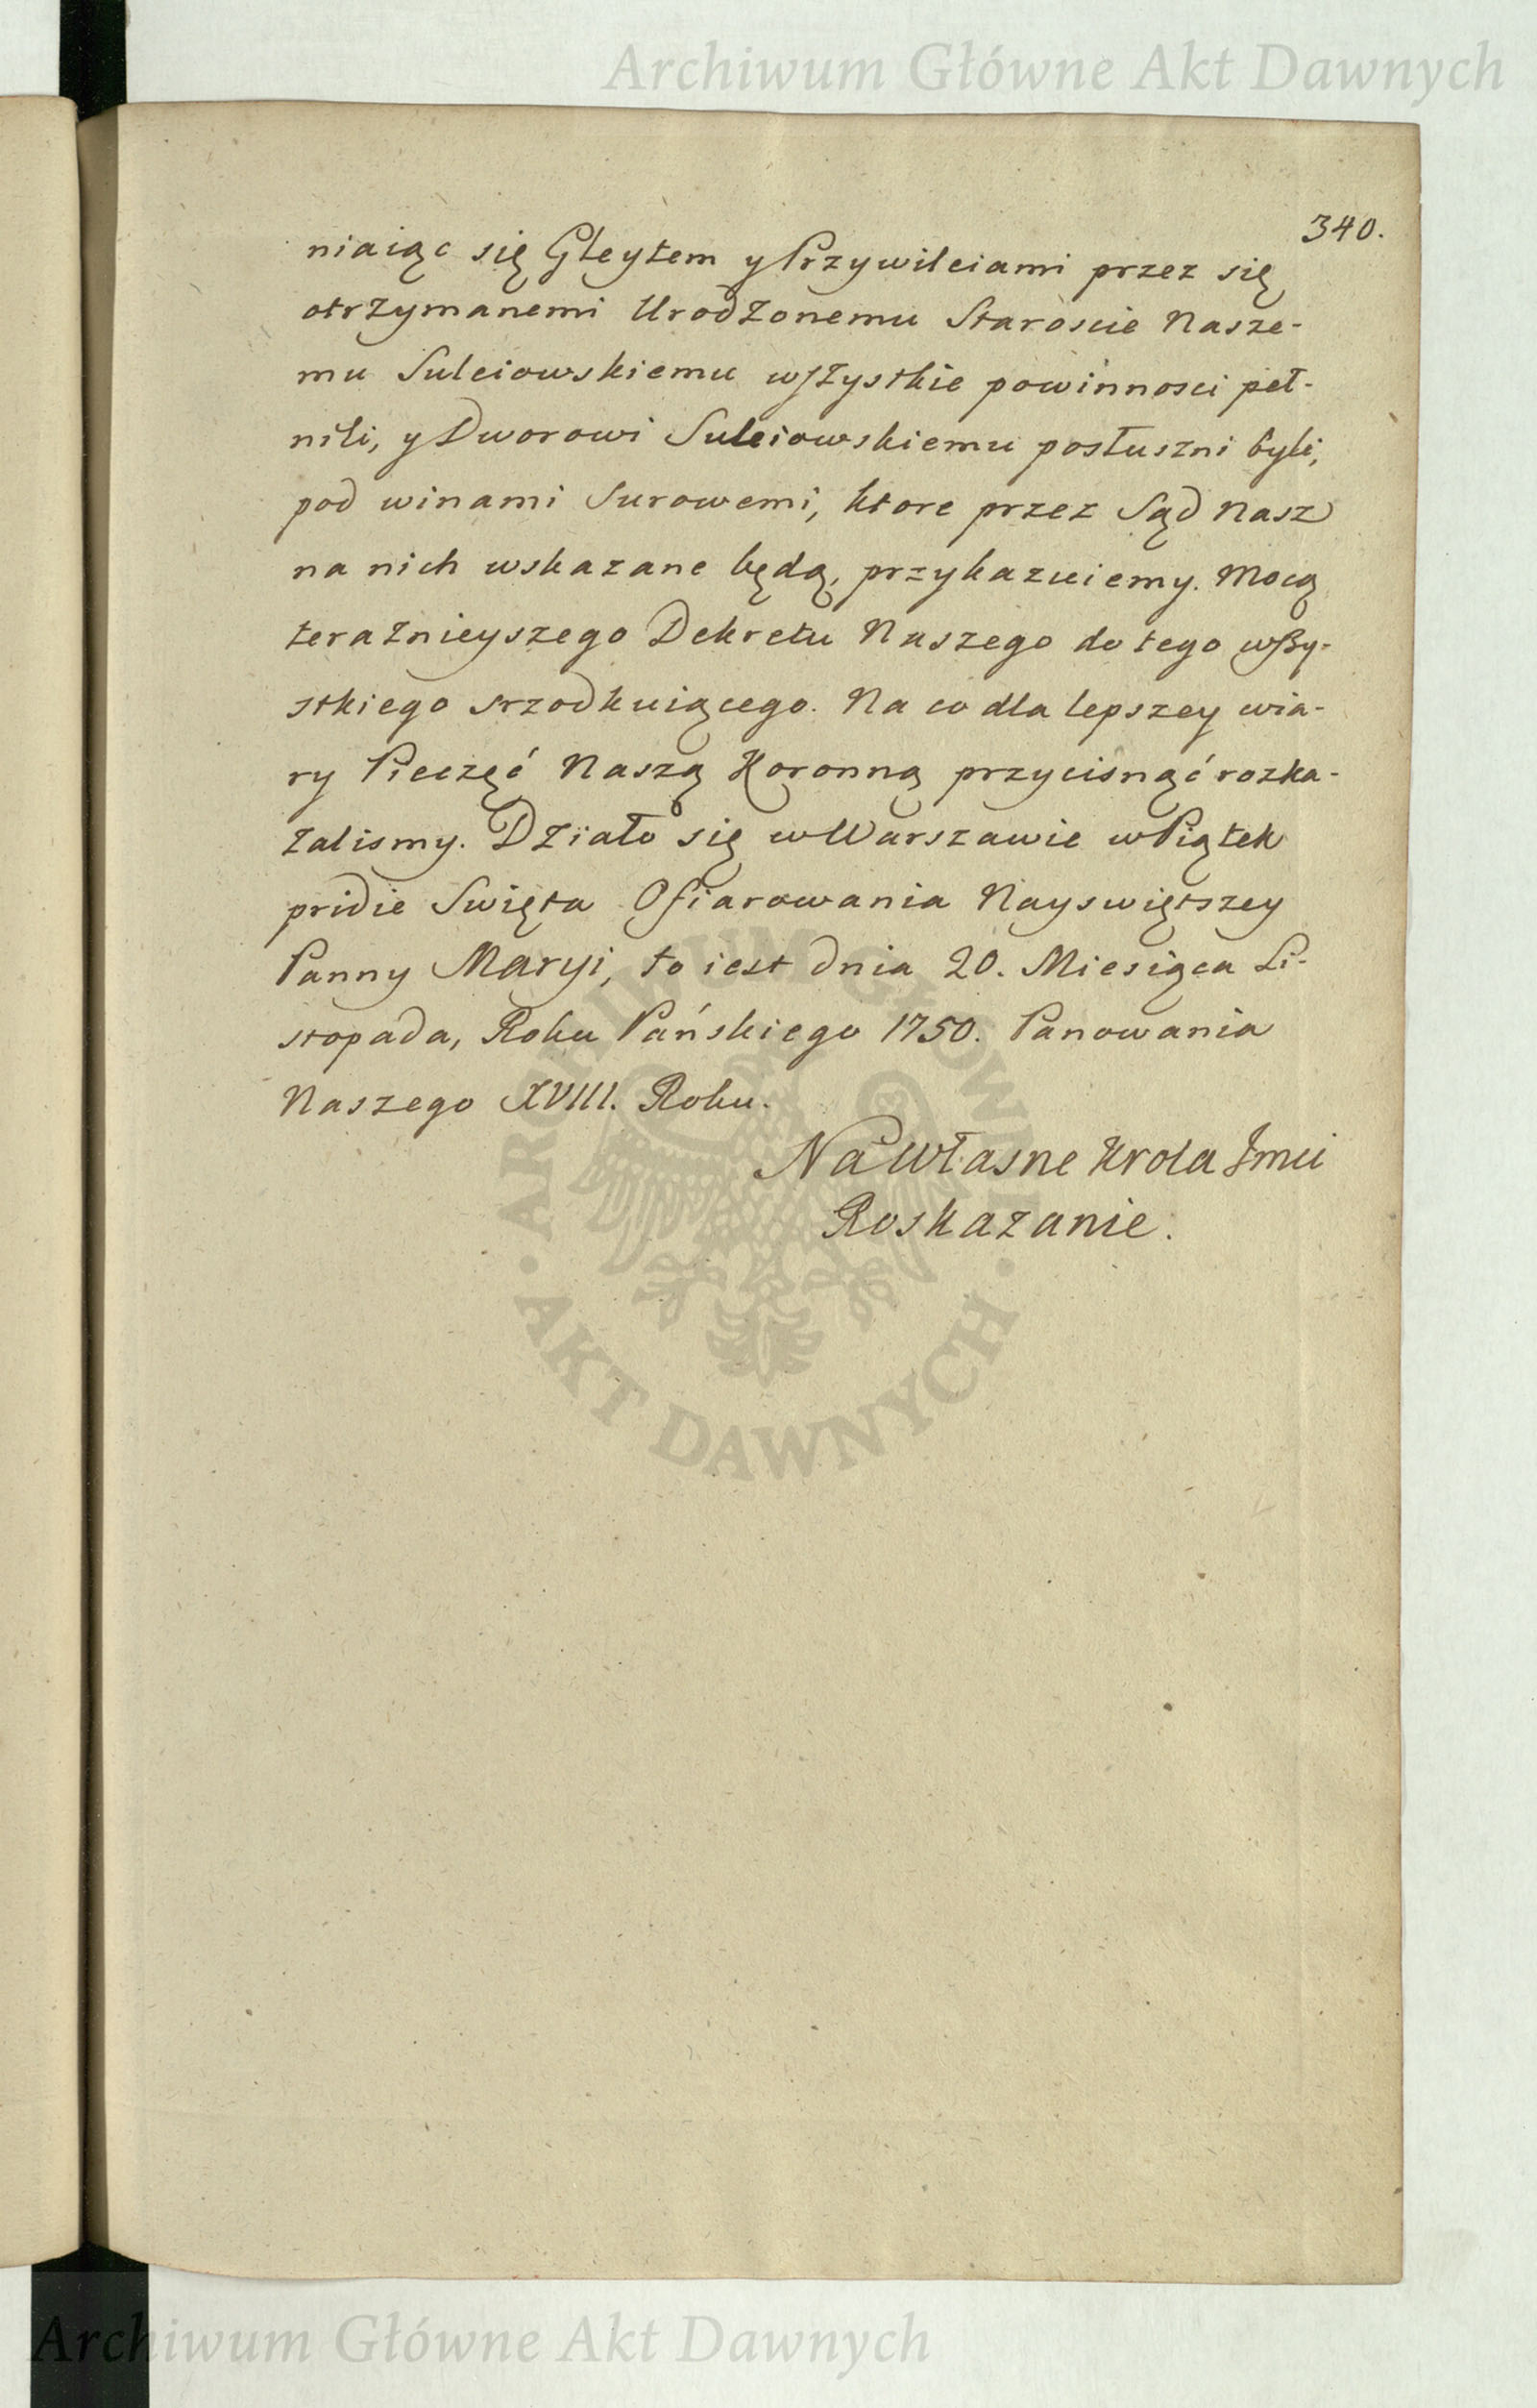 Archiwum Główne Akt Dawnych
340.
niaiąc się Gleytem y Przywileiami przez się
otrzymanemi Urodzonemu Staroscie Nasze-
mu Suleiowskiemu wszystkie powinnosci peł-
nili, y Dworowi Suleiowskiemu posłuszni byli,
pod winami Surowemi, ktore przez Sąd Nasz
na nich wskazane będą, przykazuiemy. Mocą
teraznieyszego Dekretu Naszego do tego wszy-
stkiego srzodkuiącego. Na co dla lepszey wia-
ry Pieczęć Naszą Koronną przycisnąć rozka-
zalismy. Działo się w Warszawie w Piątek
pridie Swięta Ofiarowania Nayswiętszey
Panny Maryi, to iest dnia 20. Miesiąca Li-
stopada, Roku Pańskiego 1750. Panowania
Naszego XVIII. Roku.
Na Własne Krola Jmci
Roskazanie.
ARCHIWUM GŁÓWNE
AKT DAWNYCH
Archiwum Główne Akt Dawnych